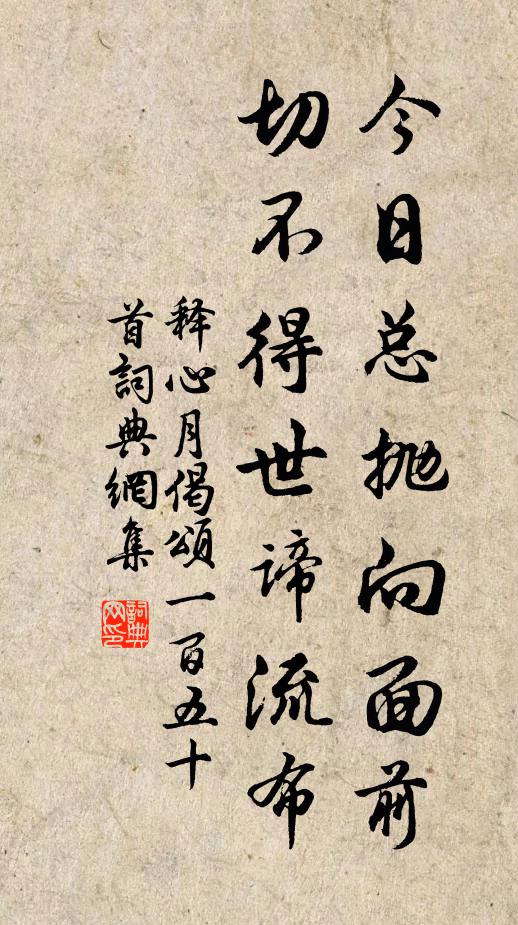 今日总抛向面前
切不得世谛流布
释心月偈颂一百五十
首詞典網集
詞典
网印